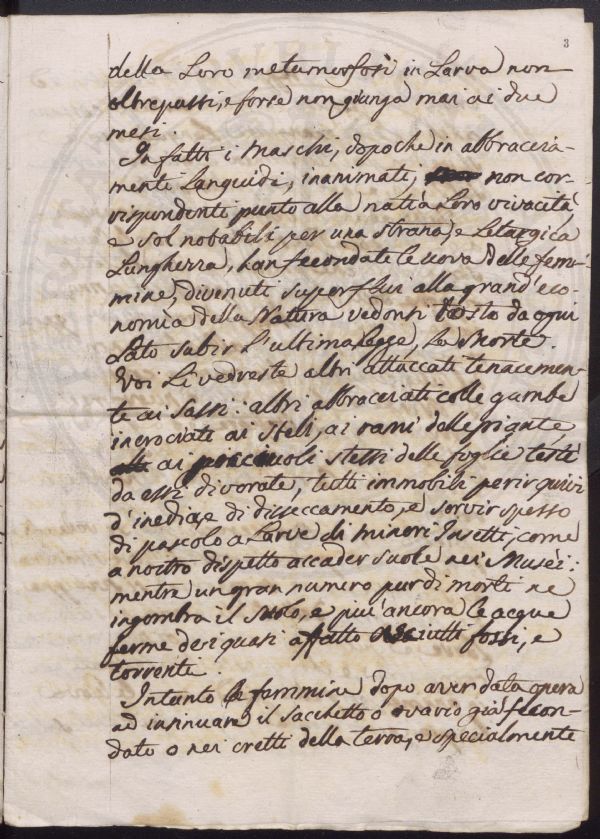 3
della Loro metamorfosi in Larva non
oltrepassi, e forse non giunga mai ai due
mesi.
Infatti i Maschi, dopoche in abbraccia-
menti Languidi, inanimati, non cor-
rispondenti punto alla natia Loro vivacità,
e sol notabili per una strana, e Letargica
Lungherra, han fecondate le uova delle fem-
mine, divenuti superflui alla grand'eco-
nomia della Natura vedonsi tosto da ogni
Lato subir L'ultima Legge, La Morte.
Voi Li vedreste altri attaccati tenacemen-
te ai sassi: altri abbracciati colle gambe
incrociate ai steli, ai rami delle piante,
ai picciuoli stessi delle foglie testè
da essi divorate, tutti immobili perir quivi
d'inedia, e di disseccamento, e servir spesso
di pascolo a Larve di minori Insetti, come
a nostro dispetto accader suole nei Musèi:
mentre un gran numero pur di morti ne
ingombra il suolo, e più ancora le acque
ferme dei quasi affatto asciutti fossi, e
torrenti.
Intanto le femmine dopo aver data opera
ad insinuare il sacchetto o ovario già fecon-
dato o nei cretti della terra, e specialmente